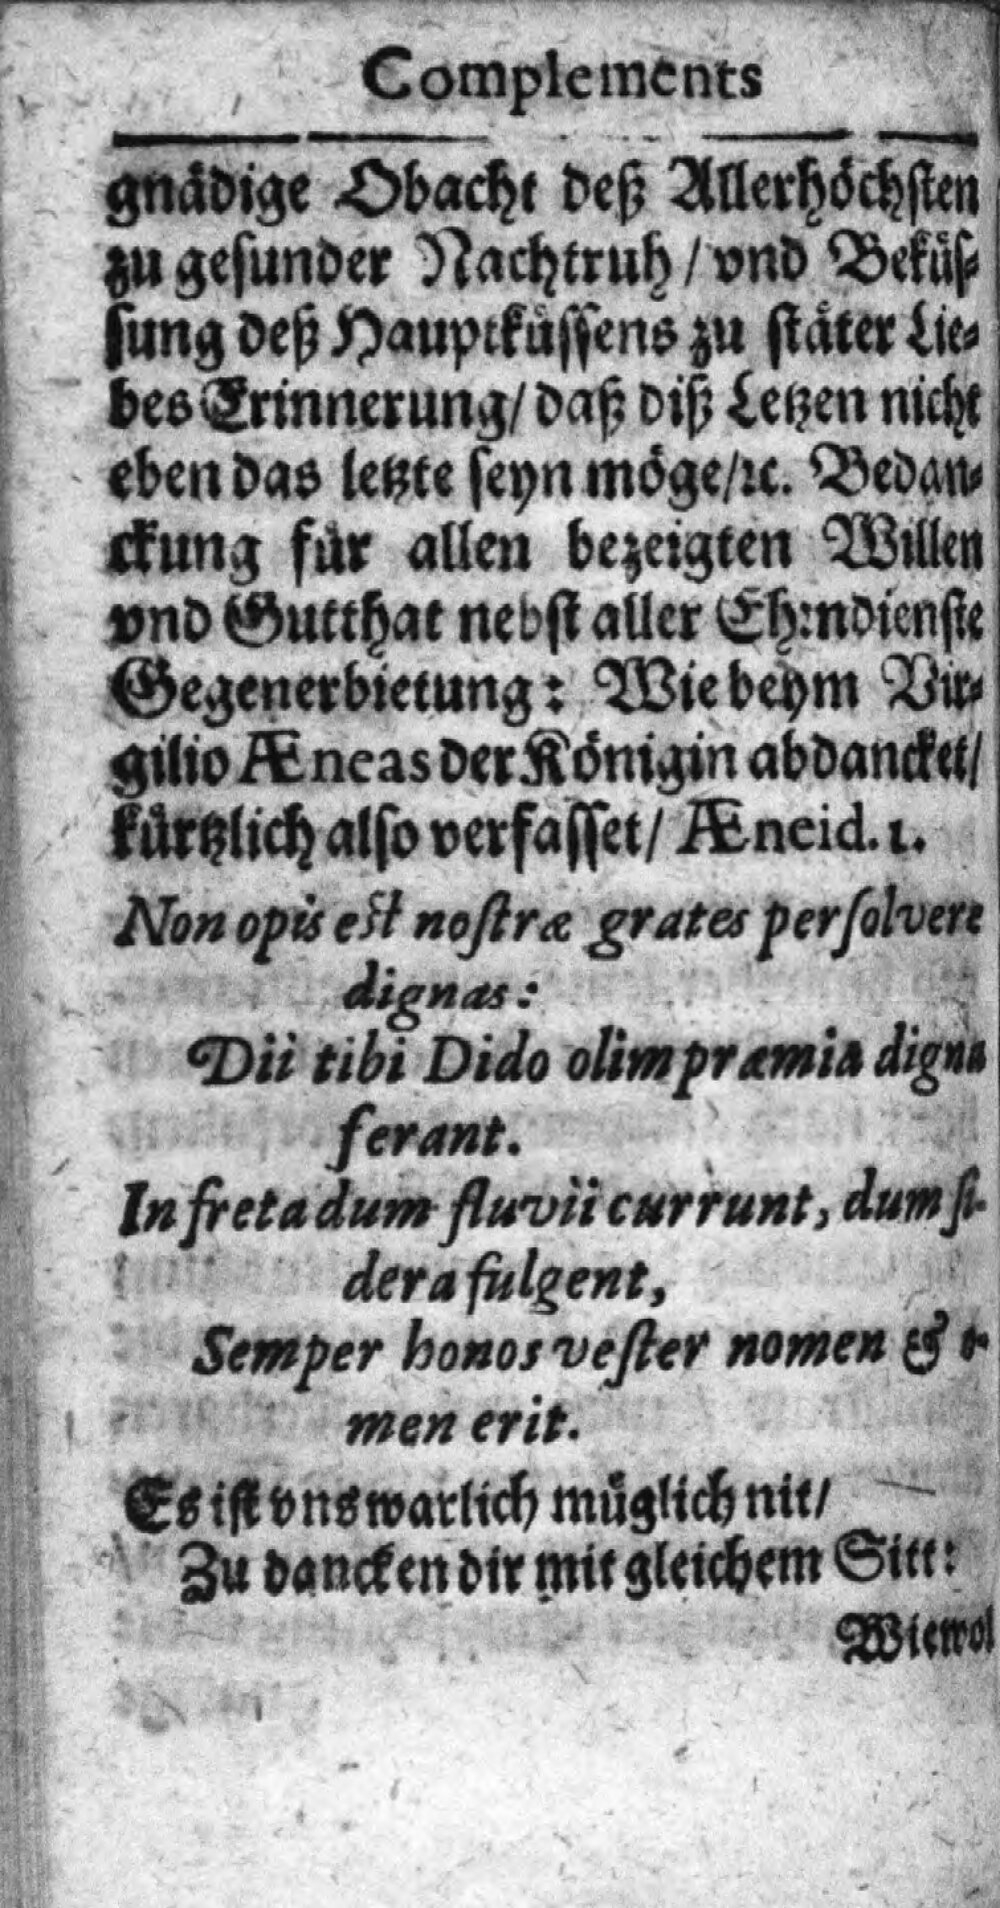 Complements
gnädige Obacht deß Allerhöchsten
zu gesunder Nachtruh / vnd Beküs-
sung deß Hauptküssens zu stäter Lie-
bes Erinnerung / daß diß Letzen nicht
eben das letzte seyn möge / ꝛc. Bedan-
ckung für allen bezeigten Willen
vnd Gutthat nebst aller Eh:ndienste
Gegenerbietung: Wie beym Vir-
gilio Æneas der Königin abdancket /
kürtzlich also verfasset / Æneid. 1.
Non opis est nostræ grates persolvere
dignas:
Dii tibi Dido olim præmia digna
ferant.
In freta dum fluvii currunt, dum si-
dera fulgent,
Semper honos vester nomen &
men erit.
Es ist vns warlich müglich nit /
Zu dancken dir mit gleichem Sitt:
Wiewol